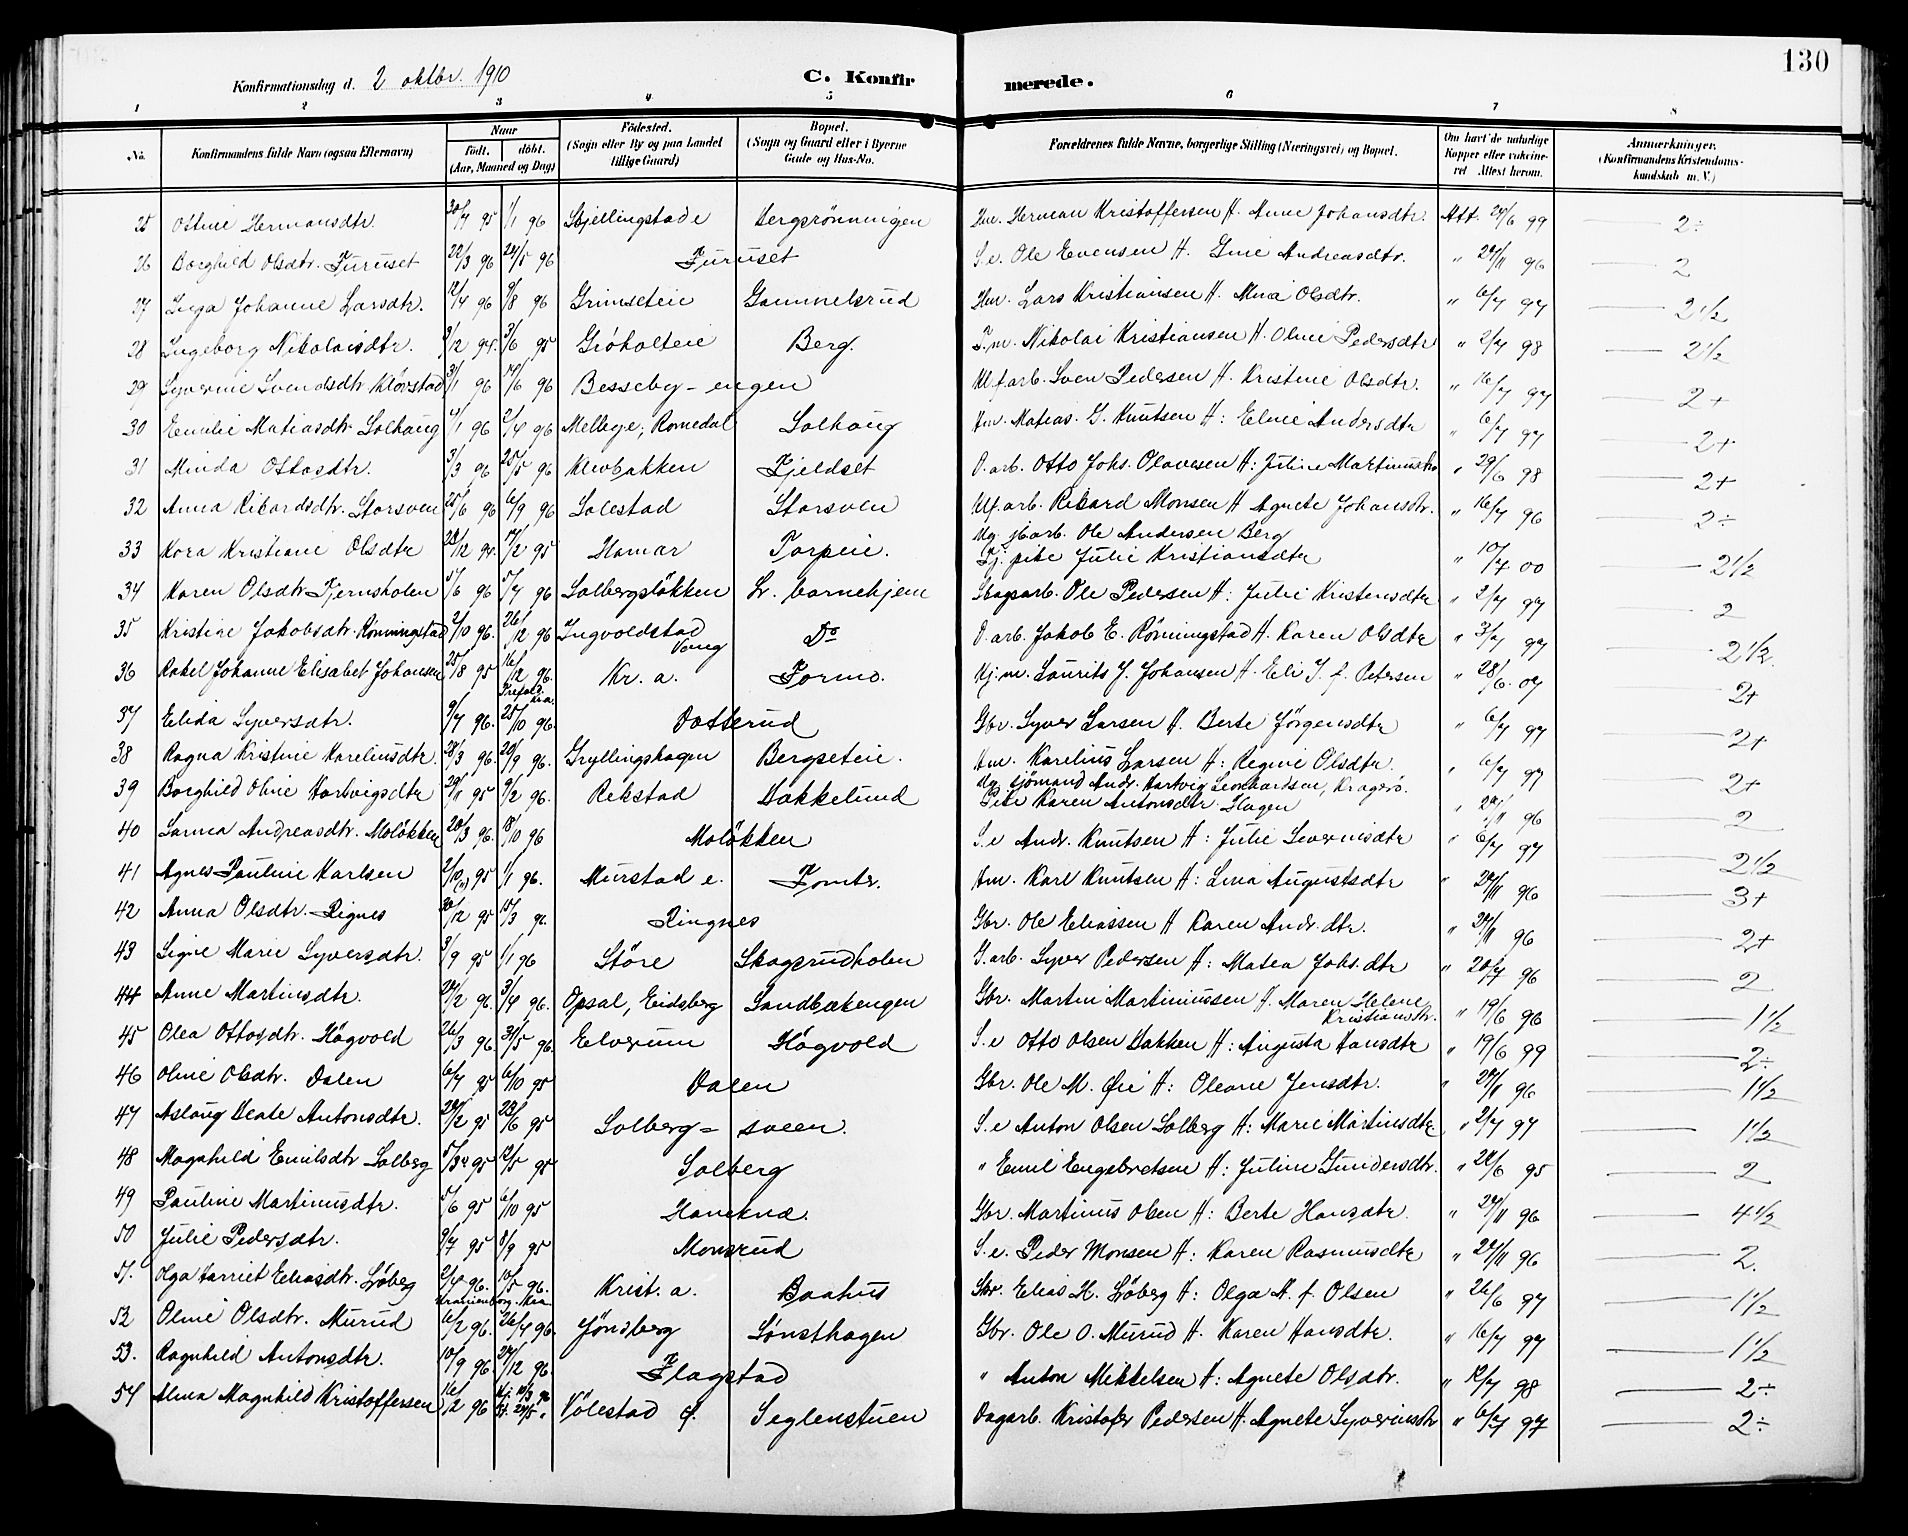 130
Konfirmationsdag d. 2 oktbr. 1910
C. Konfirmerede.
1 2 3 4 5 6 7 8
No. Konfirmandens fulde Navn (ogsaa Efternavn) Naar født. døbt. (Aar, Maaned og Dag) Fødested. (Sogn eller By og paa Landet tillige Gaard) Bopæl. (Sogn og Gaard eller i Byerne Gade og Hus-No. Forældrenes fulde Navne, borgerlige Stilling (Næringsvei) og Bopæl. Om havt de naturlige Kopper eller vakcineret Attest herom. Anmærkninger. (Konfirmandens Kristendomskundskab m. V.)
25 Ostine Hermansdtr. 95 1/1 96 Skjellingstad e Bergsrönningen Hm. Herman Kristoffersen H. Anne Johansdtr. Att. 24/6 99 2÷
26 Borghild Olsdtr. Furuset 22/3 96 24/5 96 Furuset S.e. Ole Evensen H. Gine Andreasdtr. " 24/11 96 2
27 Inga Johanne Larsdtr. 12/4 96 9/8 96 Grimseteie Gammelsrud Hm. Lars Kristiansen H. Mina Olsdtr. " 6/7 97 2 1/2
28 Ingeborg Nikolaisdtr. 3/6 95 Gröholteie Berg. F.m. Nikolai Kristiansen H. Oline Pedersdtr " 2/7 98 2 1/2
29 Syverine Svendsdtr. Klövstad 31/1 96 14/6 96 Besseby-engen Ulf.arb. Sven Pedersen H. Kristine Olsdtr. " 16/7 97 2+
30 Emilie Matiasdtr. Solhaug 4/1 96 2/4 96 Melbye, Romedal Solhaug Hm. Matias. G. Knutsen H: Eline Andersdtr " 6/7 97 2+
31 Minda Ottosdtr. 3/3 96 25/5 96 Klevbakken Fjeldset D.arb. Otto Johs. Olavesen H: Juline Martinusdtr " 29/6 98 2+
32 Anna Rikardsdtr. Storsveen 25/6 96 6/9 96 Solestad Storsveen Ulf.arb. Rikard Monsen H Agnete Johansdtr. " 16/7 96 2÷
33 Kora Kristiane Olsdtr 17/2 95 Hamar Torpeie. Ug. jb.arb. Ole Andersen Berg
Tj. pike Julie Kristiansdtr " 10/7 00 2 1/2
34 Karen Olsdtr. Fjernsholen 17/6 96 5/7 96 Solbergslökken Lr. barnehjem Skogsarb. Ole Pedersen H: Julie Kristensdtr " 2/7 97 2
35 Kristine Jakobsdtr. Rönningstad 2/10 96. 26/12 96 Ingvoldstad Vang Do D.arb. Jakob E. Rönningstad H. Karen Olsdtr " 3/7 97 2 1/2.
36 Rakel Johanne Elisabet Johansen 25/8 95 16/12 96. Trefold. kra. Kr. a. Formo. Kj.m. Laurits J. Johansen H. Eli J. f. Petersen " 28/6. 07 2+
37 Elida Syversdtr. 9/7 96. 25/10 96. Dotterud Gbr. Syver Larsen H. Berte Jörgensdtr " 6/7 97 2+
38 Ragna Kristine Kareliusdtr. 28/3 96. 20/9 96. Gryllingshagen Bergseteie. Hm. Karelius Larsen H: Regine Olsdtr. " 6/7 97 2+
39 Borghild Oline Hartvigsdtr 29/11 95 9/2 96. Rekstad Dakkelund Ug. sjömand Andr. Hartvig Leonhardsen, Kragerö.
Pike Karen Antonsdtr Hagen " 24/11 96 2
40 Lovisa Andreasdtr. Moløkken 20/3 96. 18/10 96 Moløkken S.e Andr. Knutsen H: Julie Severinsdtr " 6/7 97 2 1/2
41 Agnes Pauline Karlsen 95 1/1 96. Murstad e. Fomtr. Hm. Karl Knutsen H: Lina Augustsdtr " 24/11 96 3+
42 Anna Olsdtr. Rignes 30/12 95 15/3 96. Ringnes Gbr. Ole Eliassen H Karen Andr.dtr. " 24/11 96 2+
43 Signe Marie Syversdtr. 3/9 95 1/1 96 Störe Skogsrudholen G.arb. Syver Pedersen H: Matea Johs.dtr " 20/7 96 2
44 Anne Martinsdtr. 24/2 96. 3/4 96. Opsal, Eidsberg Sandbækengen Gbr. Martin Martiniussen H. Maren Helene
Kristiansdtr. " 19/6 96 1 1/2
45 Olea Ottosdtr. Högvold 26/3 96. 31/5 96. Elverum Högvold S.e Otto Olsen Bakken H: Augusta Hansdtr " 19/6 99 2÷
46 Oline Olsdtr. Dalen 6/7 95 6/10 95 Dalen Gbr. Ole M. Öie H: Oleane Jensdtr. " 24/11 96 1 1/2
47 Aslaug Beate Antonsdtr. 24/2 95 23/6 95 Solberg=sveen. S.e Anton Olsen Solberg H: Marie Martinsdtr " 2/7 97 1 1/2
48 Magnhild Emilsdtr Solberg 95 12/5 95 Solberg " Emil Engebretsen H: Juline Gundersdtr. " 24/6 95 2
49 Pauline Martinusdtr. 5/6 95 6/10 95 Hanekne. Gbr. Martinus Olsen H: Berte Hansdtr. " 24/11 96 4 1/2
50 Julie Pedersdtr. 9/7 95 8/9 95 Monsrud S.e. Peder Monsen H: Karen Rasmusdtr " 24/11 96 2.
51. Olga Harriet Eliasdtr. Löberg 2/4 96. 10/5 96. Uranienborg. Kra. Krist. a. Baahus Skr. Elias H. Löberg H: Olga H. f. Olsen " 26/6 97 1 1/2
52 Oline Olsdtr. Murud 6/2 96. 26/4 96. Jönsberg Sönsthagen Gbr. Ole O. Murud H. Karen Hansdtr. " 16/7 97 1 1/2
53. Ragnhild Antonsdtr. 10/9 96. 27/12 96. Flagstad " Anton Mikkelsen H: Agnete Olsdtr. " 12/7 98 2÷
54 Alma Magnhild Kristoffersen 16/2 96 Hj. 18/3 96 St. 24/5 " Völestad ö. Seglenstuen Dagarb. Kristofer Pedersen H. Agnete Syverinsdtr " 6/7 97 2÷